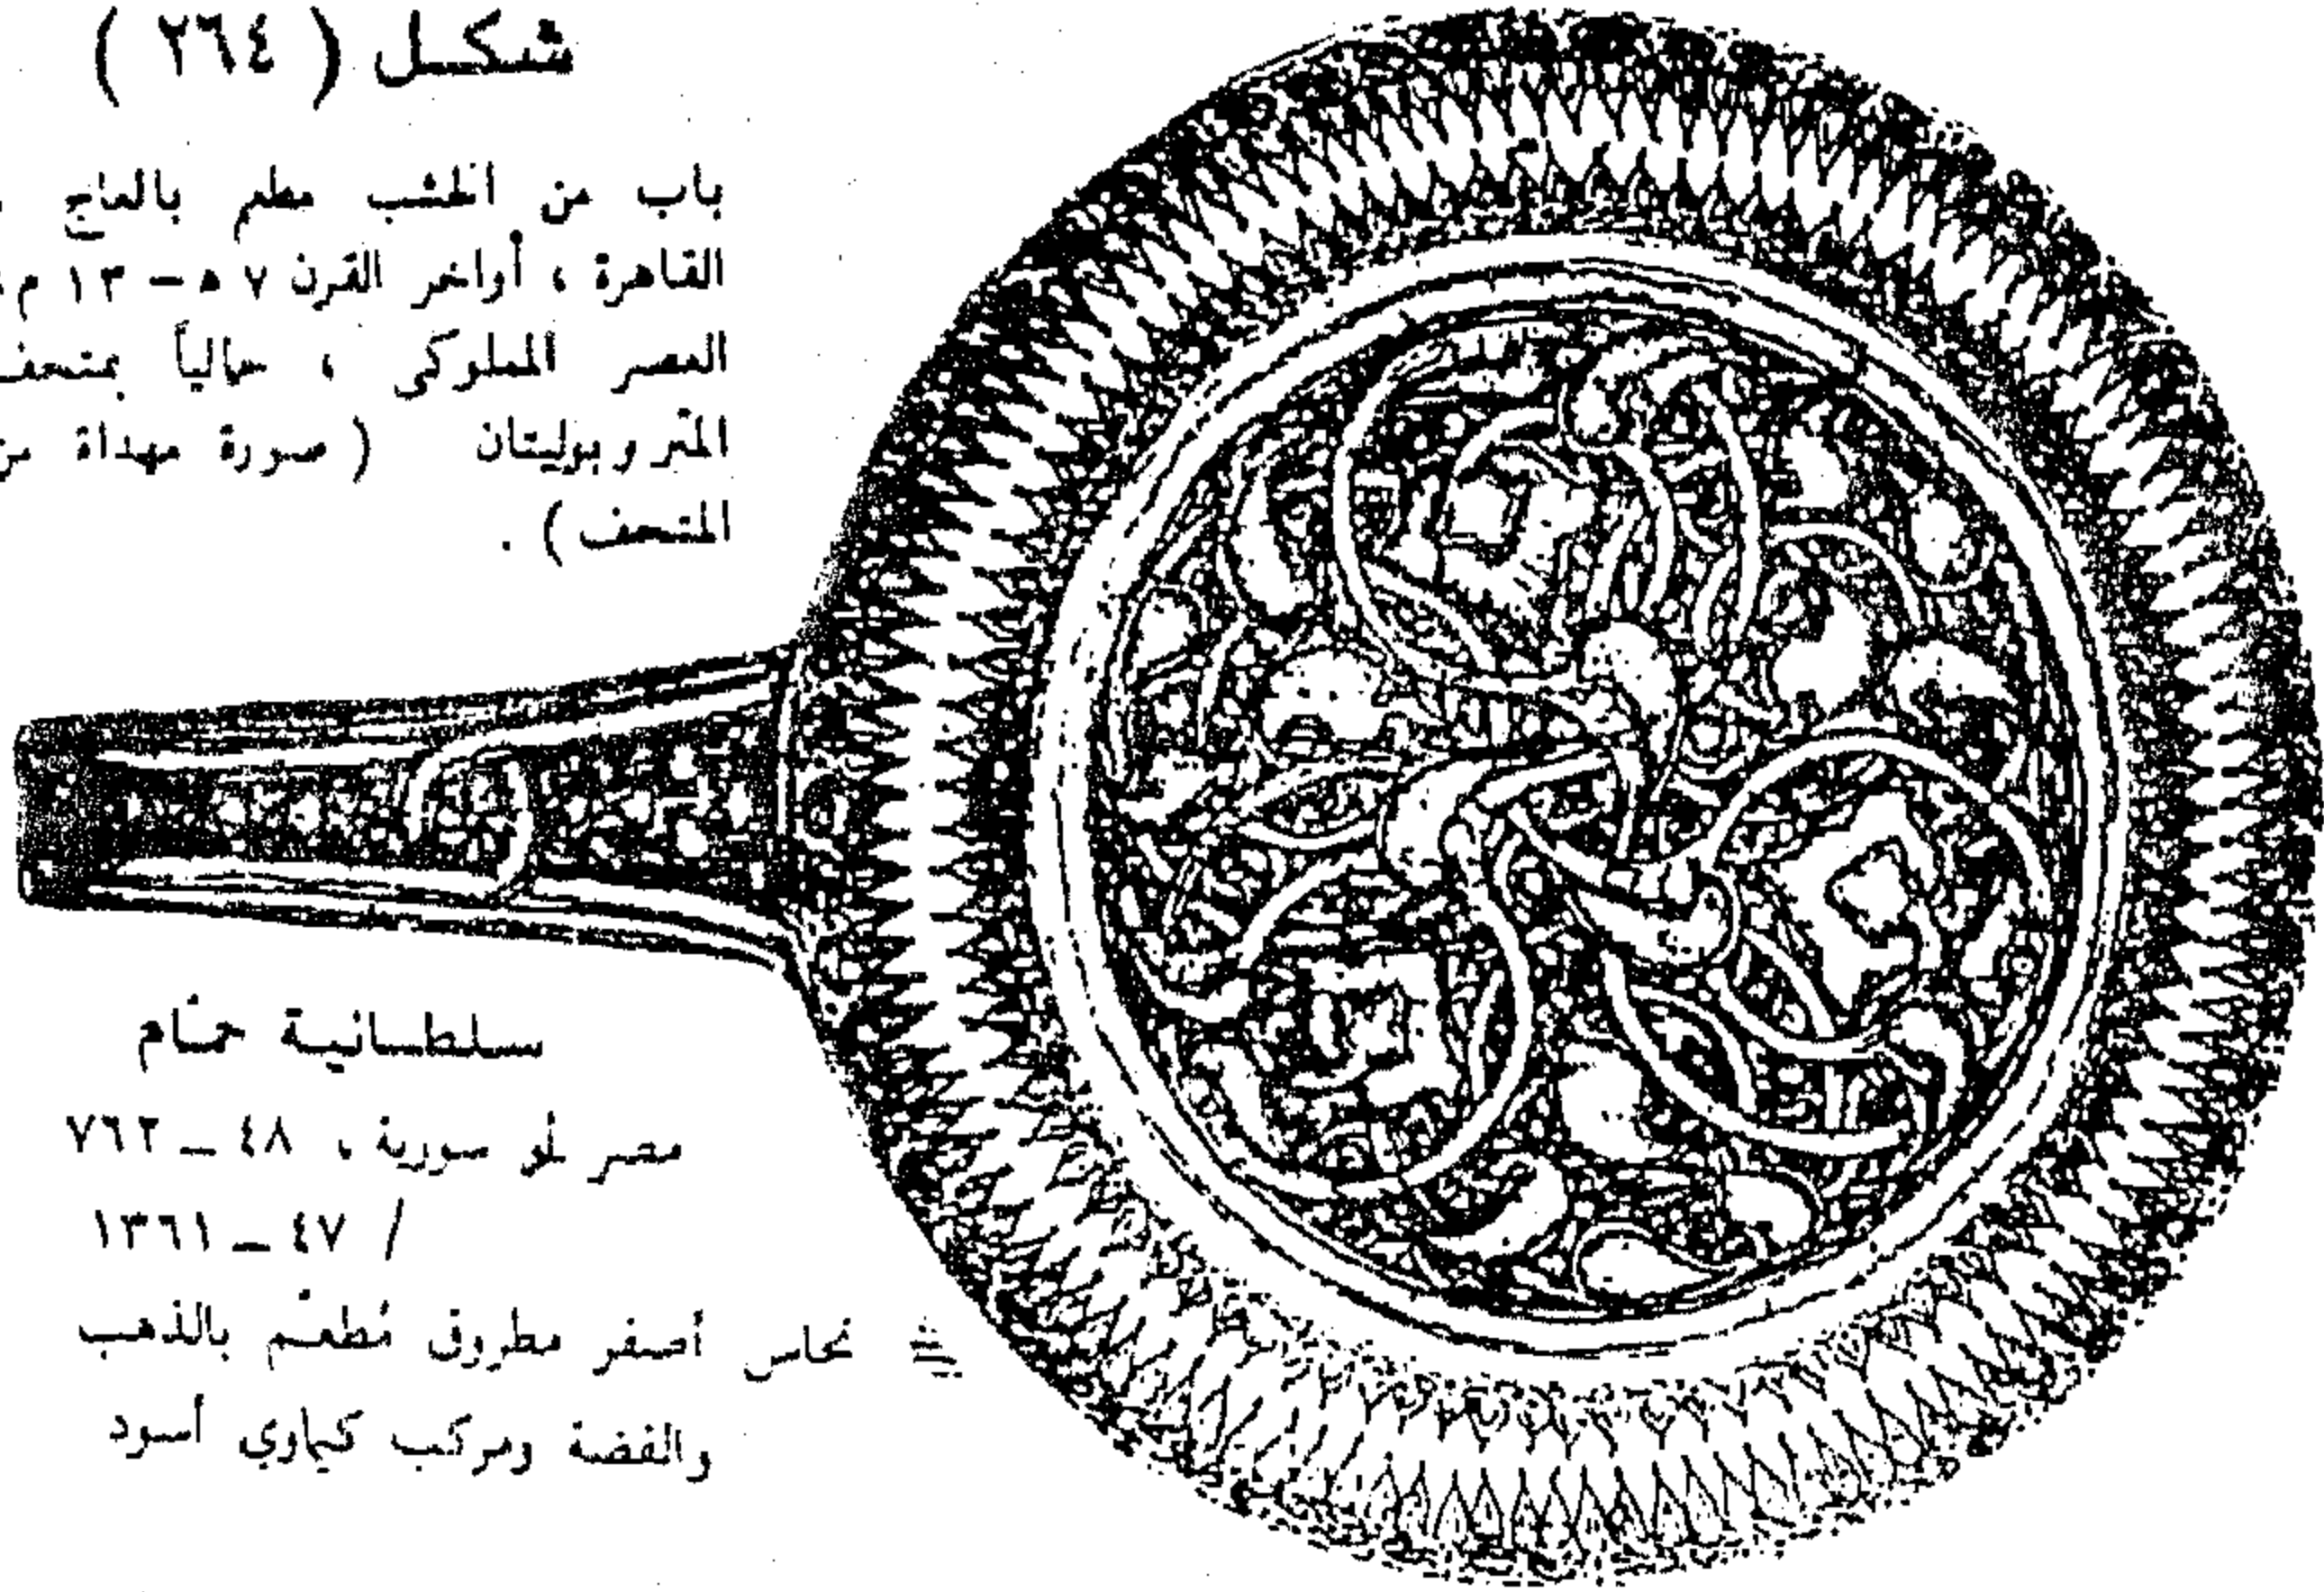 شكل ( ٢٦٤ )
باب من الخشب مطعم بالعاج
القاهرة ، أواخر القرن ٧ هـ – ١٣ م
العصر المملوكى ، حالياً بمتحف
المتروبوليتان ( صورة مهداة من
المتحف ) .
سلطانية حمّام
مصر أو سورية ، ٤٨ – ٧٦٢
/ ٤٧ – ١٣٦١
نحاس أصفر مطروق مُطعّم بالذهب
والفضة ومركب كيماوي أسود